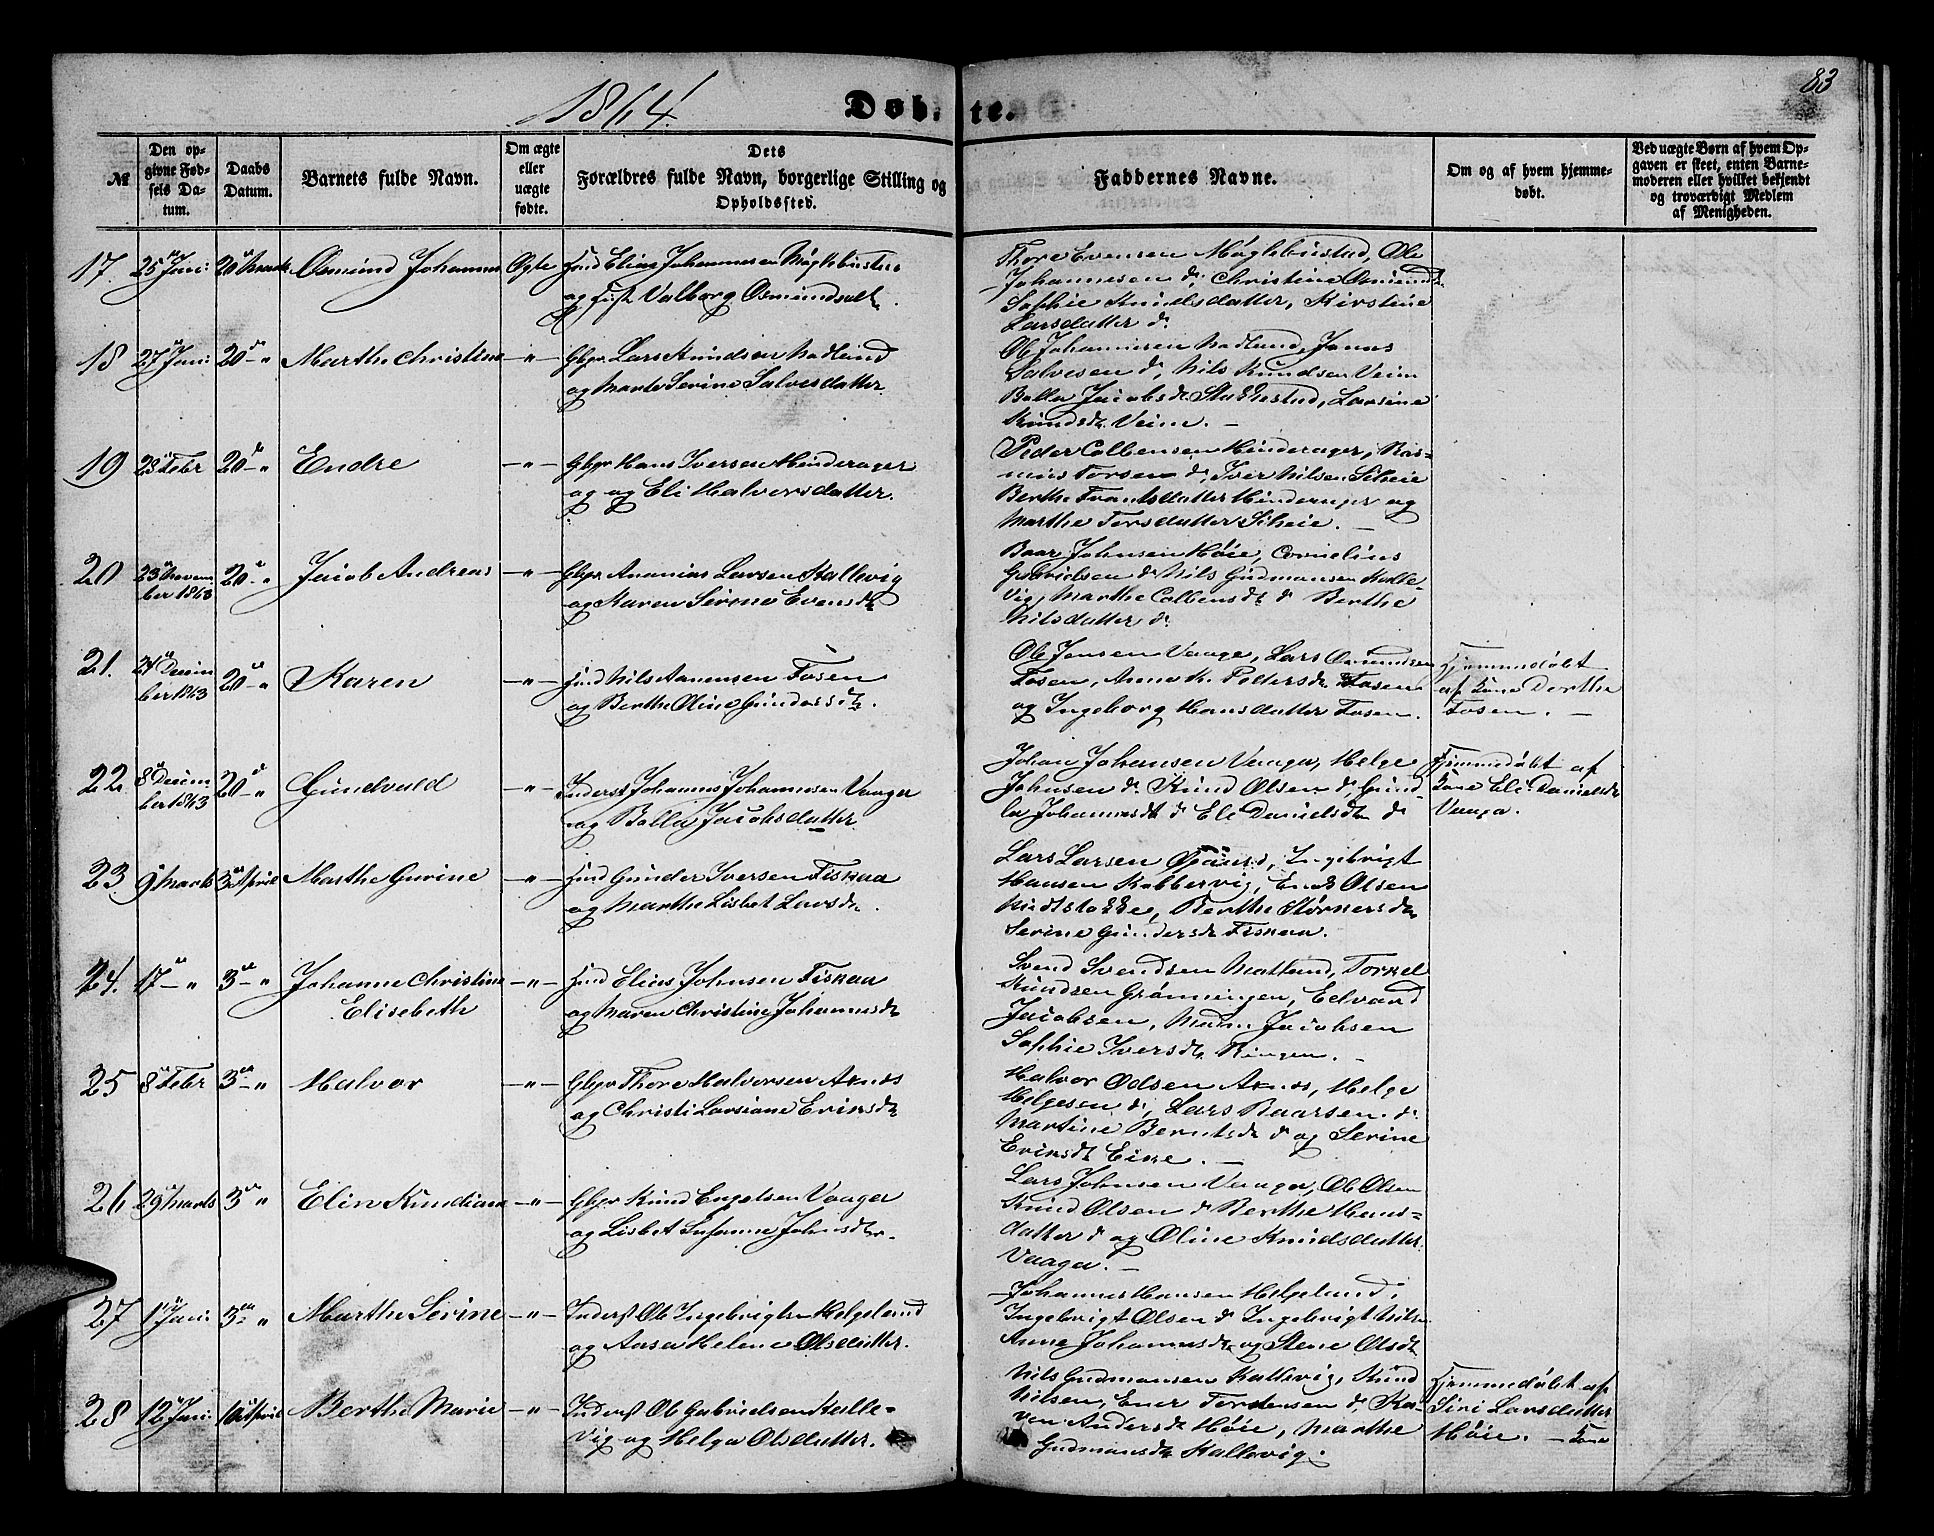 1864.
Døbte.
83
№
Den opgivne Fødsels Datum.
Daabs Datum.
Barnets fulde Navn.
Om ægte eller uægte fødte.
Dets Forældres fulde Navn, borgerlige Stilling og Opholdssted.
Faddernes Navne.
Om og af hvem hjemmedøbt.
Ved uægte Børn af hvem Opgaven er skeet, enten Barnemoderen eller hvilket bekjendt og troværdigt Medlem af Menigheden.
17. 25 Jani: 20 Marts Osmund Johannes Ægte Huusm Elias Johannesen Møglebustad
og Valborg Osmundsdtr.
Thore Evensen Møglebustad, Ole
Johannesen d: Christine Osmundsdtr
Sophie Knudsdatter, Kirstine
Larsdatter d:
18 27 Jani: 20 - " Marthe Christine - " - Gbpr Lars Knudsen Nadland
og Marte Serine Salvesdatter.
Ole Johannesen Nadland, Jonas
Salvesen d: Nils Knudsen Veim
Balla Jacobsdtr Stakkestad, Larsine
Knudsdtr Veim. -
19 23 Febr 20 - " Endre - " - Gbpr Hans Iversen Hinderager
og og Eli Halvorsdatter.
Peder Colbensen Hinderager, Ras-
mus Torsen d: Iver Nilsen Scheie
Berthe Frantsdatter Hinderager og
Marthe Torsdatter Scheie. -
20 23 Novem 20 - " Jacob Andreas - " - Gbpr Ananias Larsen Kallevig
ber 1863 og Karen Serene Evensdtr
Baar Johnsen Høie, Cornelius
Gabrielsen d: Nils Gudmansen Kalle-
vig, Marthe Colbensdtr d: Berthe
Nilsdatter d:
21. 24 Decem 20 - " Karen - " - Huusm Nils Aanensen Fosen
ber 1863 og Berthe Oline Gundersdtr.
Ole Jensen Vaage, Lars Osmundsen
Fosen, Anna K. Pedersdtr Fosen
og Ingeborg Hansdatter Fosen.
Hjemmedøbt
af Kone Dorthe
Fosen. -
22 8 Decem 20 - " Gundvald - " - Inderst Johannes Johannesen Vaage
ber 1863 og Balla Jacobsdatter
Johan Johansen Vaage, Helge
Johnsen d: Knud Olsen d: Gund-
la Johannesdtr d: Eli Danielsdtr d:
Hjemmedøbt af
Kone Eli Danielsdtr
Vaage.
23. 9 Marts 3 April Marthe Gurine - " - Huusm Gunder Iversen Fisnaa
og Marthe Lisbet Larsdtr.
Lars Larsen, Ingebrigt
Hansen Kobbervig, Olsen
Berthe Størkersdtr
Serine Gundersdtr Fisnaa.
24. 17 - " 3 - " Johanne Christine - " - Huusm Elias Johnsen Fisnaa
Elisebeth og Maren Christine Johannesdtr
Svend Svendsen Matland, Torkel
Knudsen Grønningen, Edvard
Jacobsen, Jacobsen
Sophie Iversdtr Ringen. -
25 8 Febr 3 - " Halvor - " - Gbpr Thore Halvorsen Aknes
og Christi Larsiane Eriksdtr
Halvor Odsen Aknes, Helge
Helgesen d: Lars Baarsen d:
Martine Berntsdtr d: og Serine
Eriksdtr Eike. -
26 29 Marts 3 " Elin Knudiane - " - Gbpr Knud Engelsen Vaage
og Lisbet Susanne Johnsdtr.
Lars Johnsen Vaage, Ole Olsen
Knud Olsen d: Berthe Hans-
datter d: og Oline Knudsdatter
Vaage. -
27 1 Jani: 3 - " Marthe Serine - " - Inderst Ole Ingebrigtsen Helgeland
og Aasa Helene Olsdatter.
Johannes Hansen Helgeland,
Ingebrigt Olsen d: Ingebrigt Nilsen
Anne Johannesdtr og Stene Olsdtr
28 12 Jani: 10 April Berthe Marie - " - Inderst Ole Gabrielsen Kalle-
vig og Helga Olsdatter.
Nils Gudmansen Kallevig, Knud
Nilsen, Ener Torstensen d: Ka-
ren Andersdtr Høie, Marthe
Gudmansdtr Kallevig.
Hjemmedøbt af
Siri Larsdatter
Høie. - Kone